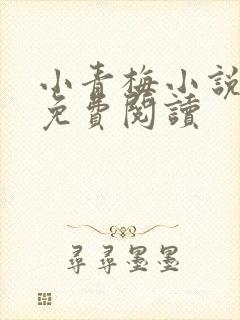 小青梅小說
免費閱讀
尋尋墨墨